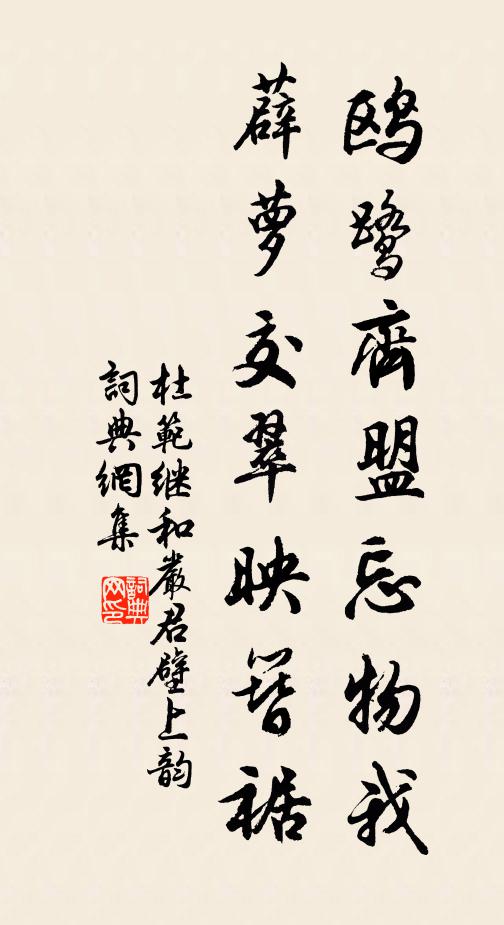 鸥鹭齊盟忘物我
薜萝交翠映簪裾
杜範继和嚴君壁上韵
詞典網集